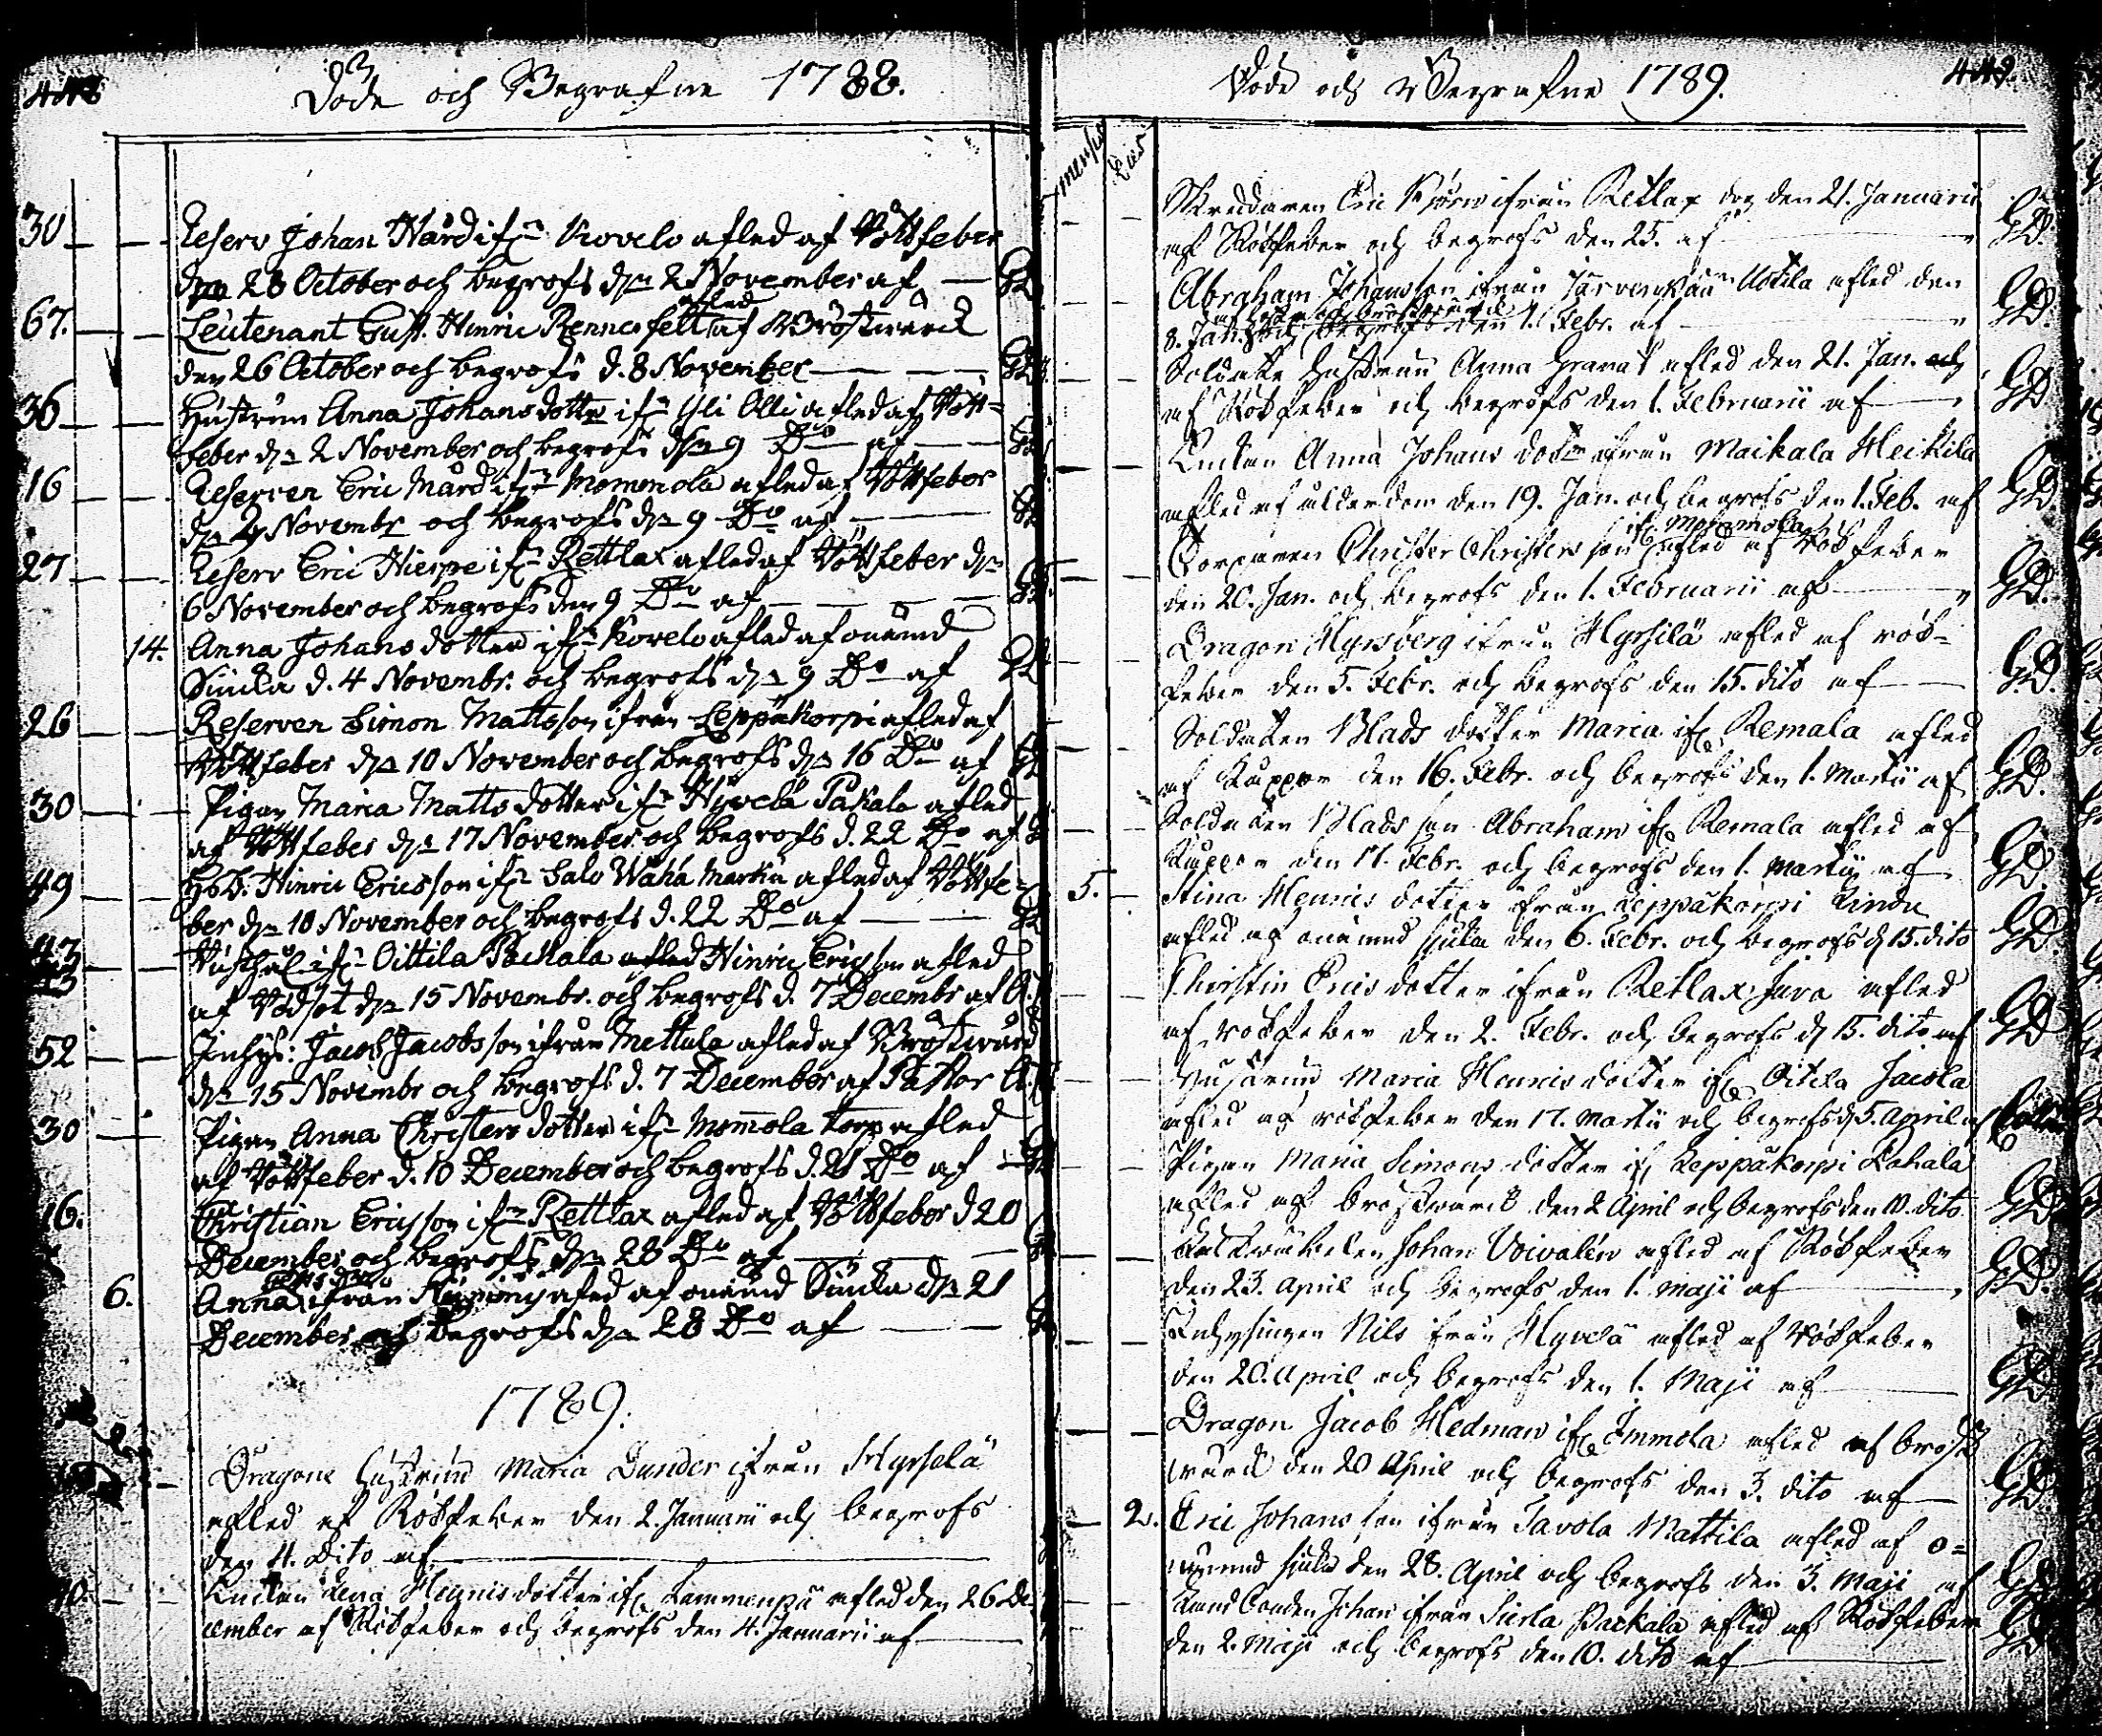 448
Döde och Begrafne 1788.
30 Reserv Johan Hård ifn Kovelo afled af Röttfeber
dn 28 October och begrofs dn 2 November af
67. Leutenant Gust. Hinric Rennerfelt afled af Bröstwärck
den 26 October och begrofs d. 8 November
36 Hustrun Anna Johansdotter ifn Yli Olli afled af Rött=
feber dn 2 November och begrofs dn 9 Do af
16 Reserven Eric Mård ifn Mommola afled af Röttfeber
dn 4 Novembr och begrofs dn 9 Do af
27 Reserv Eric Hierpe ifn Rettlax afled af Röttfeber dn
6 November och begrofs den 9 Do af
14. Anna Johans dotter ifn Kovelo afled af onämd
Siucka d. 4 Novembr. och begrofs dn 9 Do af
26 Reserven Simon Mattsson ifrån Leppäkorpi afled af
Röttfeber dn 10 November och begrofs dn 16 Do af
30 Pigan Maria Matts dotter ifn Hyvelä Pakala afled
af Röttfeber dn 17 November och begrofs d. 22 Do af
49 Hinric Ericsson ifn Salo Waha Marku afled af Röttfe=
ber dn 10 November och begrofs d. 22 Do af
43 ifn Oittila Packala afled Hinric Ericsson afled
af Vådsot dn 15 Novembr. och begrofs d. 7 Decembr af
52 Inhys: Jacob Jacobsson ifrån Mettula afled af Bröstwärck
dn 15 Novembr och begrofs d. 7 December af Pastor
30 Pigan Anna Christers dotter ifn Mommola torp afled
af Röttfeber d. 10 December och begrofs d. 21 Do af
16. Christian Ericsson ifn Rettlax afled af Röttfeber d 20
December och begrofs dn 28 Do af
6. Anna ifrån afled af onämd Siucka dn 21
December och begrofs dn 28 Do af
1789.
Dragons hustrun Maria Dunder ifrån Hyrselä
afled af Rötfeber den 2. Januarii och begrofs
den 4. Dito af
Enckan Lena Henricsdotter ifr Lammenpä afled den 26 De
cember af Rötfeber och begrofs den 4. Januarii af
449.
Döde och Begrafne 1789.
mensis Dies
Skreddaren Eric Björn ifrån Retlax dog den 21. Januarii
af Rötfeber och begrofs den 25. af GD.
Abraham Johansson ifrån Järvenpää Uotila afled den
8. Jan. och begrofs den 1. Febr. af GD.
Soldats hustrun Anna Granat afled den 21. Jan. och
af Rötfeber och begrofs den 1. Februarii af GD
Enckan Anna Johans dotter ifrån Maikala Heikila
afled af ålderdom den 19. Jan. och begrofs den 1. Feb. af GD.
ifr Mommola
Torparen Christer Christersson afled af Rötfeber
den 20. Jan. och begrofs den 1. Februarii af GD.
Dragon Hyrsberg ifrån Hyrsilä afled af röt=
feber den 5. Febr. och begrofs den 15. dito af GD.
Soldaten Blads dotter Maria ifr Remala afled
af Kuppor den 16. Febr. och begrofs den 1. Martii af GD.
Soldaten Blads son Abraham ifr Remala afled af
Kuppor den 17. Febr. och begrofs den 1. Martij af GD.
5. Stina Henrics dotter ifrån Leppäkorpi Lindu
afled af onämnd sjuka den 6. Febr. och begrofs d 15. dito GD.
Christin Erics dotter ifrån Retlax Juva afled
af rötfeber den 2. Febr. och begrofs d 15. dito af GD
Hustrun Maria Henrics dotter ifr Oitila Jacola
afled af rötfeber den 17. Martii och begrofs d 5. April af
Pigan Maria Simons dotter ifr Leppäkorpi Kahala
afled af bröstvärck den 2 April och begrofs den 10. dito GD.
Johan Voivalén afled af Rötfeber
den 23. April och begrofs den 1. Maji af GD.
Inhysingen Nils ifrån Hyvelä afled af Rötfeber
den 20. April och begrofs den 1. Maji af GD.
Dragon Jacob Hedman ifr Immola afled af bröst
wärck den 20 April och begrofs den 3. dito af GD.
2. Eric Johans son ifrån Tavola Mattila afled af o=
nämnd sjuka den 28. April och begrofs den 3. Maji af GD.
Johan ifrån Siurla Packala afled af Rötfeber
den 2. Maji och begrofs den 10. dito af GD.